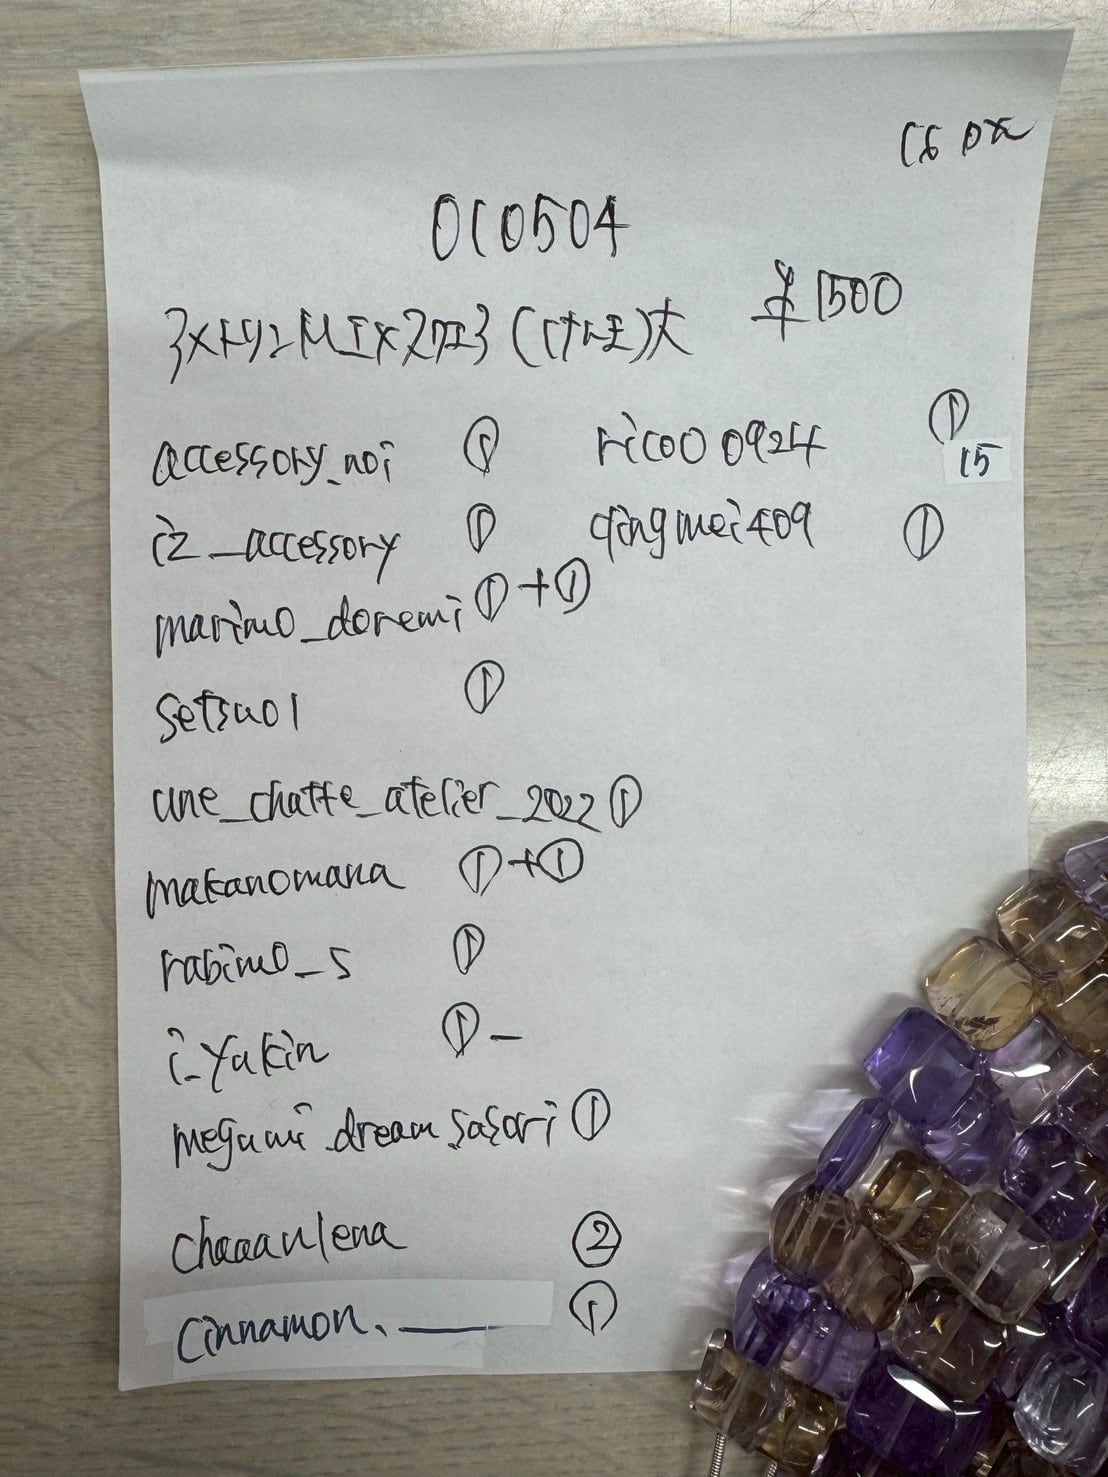 010504
¥1500
accessory_noi ①
iz_accessory ①
marimo_doremi ①+①
setsuo1 ①
une_chatte_atelier_2022 ①
makanomana ①+①
rabimo_s ①
i_yukin ① –
megumi_dream_sasori ①
chaaaulena ②
cinnamon.____ ①
rico00924 ①
15
qingmei409 ①